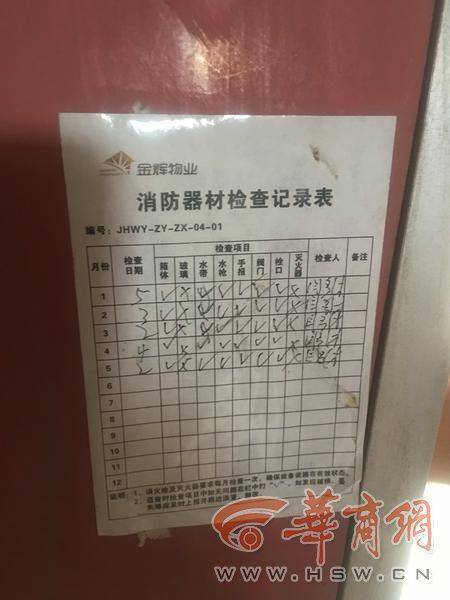 金辉物业
消防器材检查记录表
编号：JHWY-ZY-ZX-04-01
月份 检查日期 检查项目 检查人 备注
箱体 玻璃 水带 水枪 手报 阀门 栓口 灭火器
1 5 ✓ ✗ ✓ ✓ ✓ ✓ ✓ ✗
2 3 ✓ ✗ ✓ ✓ ✓ ✓ ✓ ✗
3 ✓ ✗ ✓ ✓ ✓ ✓ ✓ ✗
4 4 ✓
5 2 ✓ ✓ ✓ ✓ ✓ ✓ ✗
6
7
8
9
10
11
12
说明：1、消火栓及灭火器要求每月检查一次，确保设备被困在有效状态。
2、巡查时检查项目中如无问题在栏中打"✓"，如发现破损、丢
失等应及时上报并跟进
华商网
WWW.HSW.CN